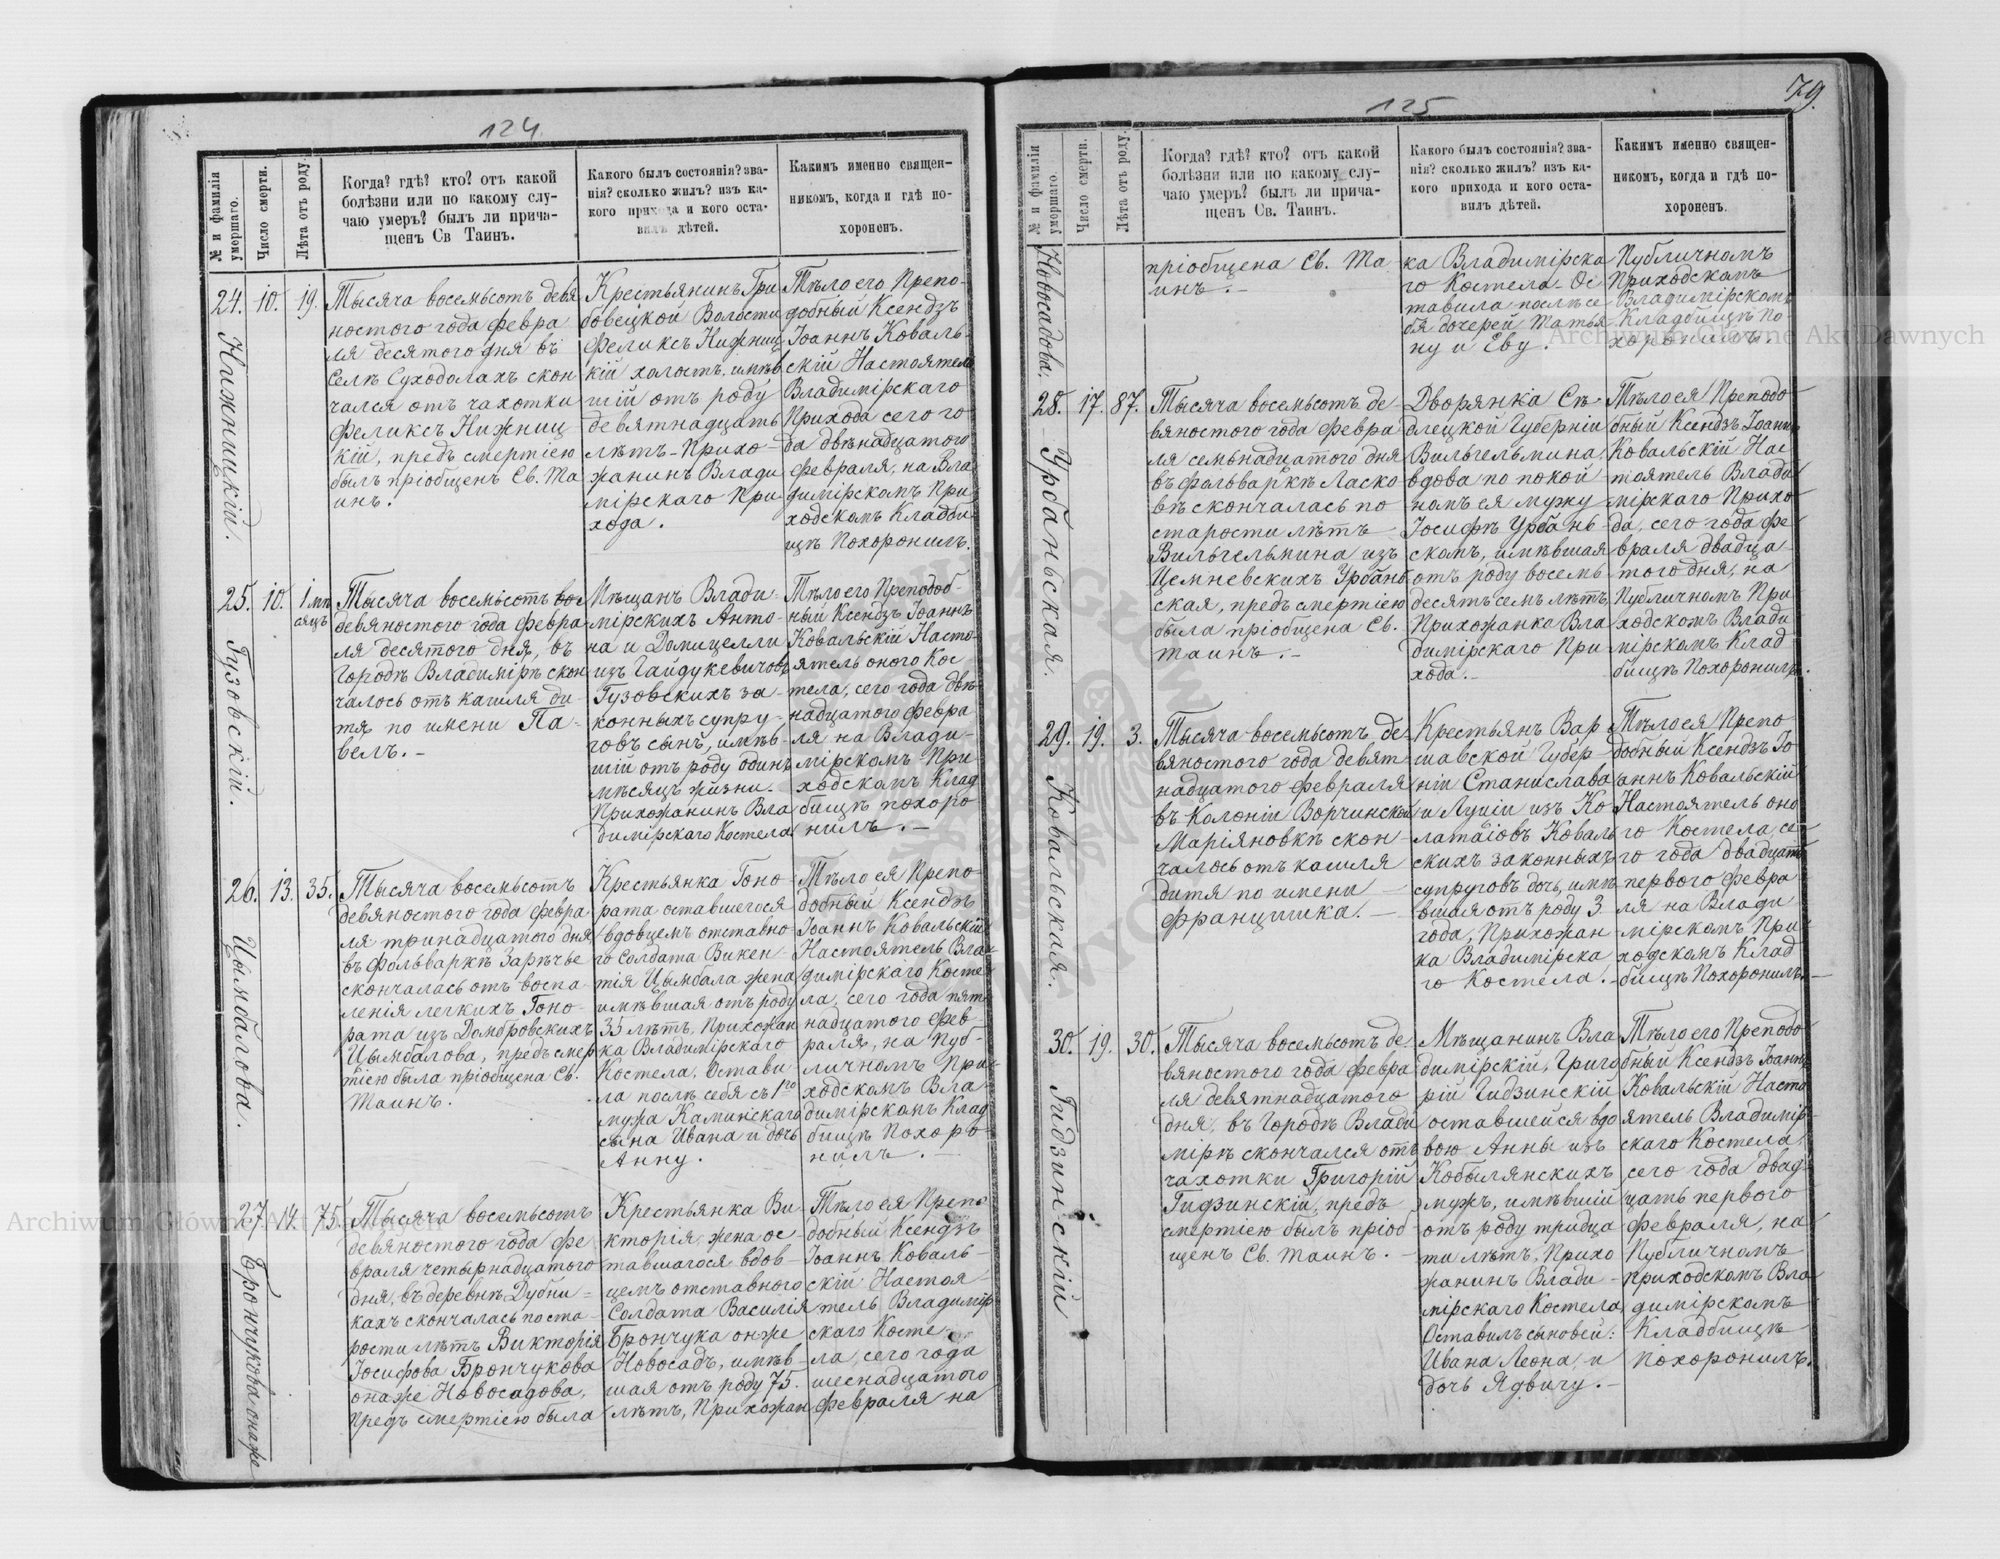 124
№ и фамилія умершаго.
Число смерти.
Лѣта отъ роду.
Когда? гдѣ? кто? отъ какой
болѣзни или по какому слу-
чаю умеръ? былъ ли прича-
щенъ Св Таинъ.
Какого былъ состоянія? зва-
нія? сколько жилъ? изъ ка-
кого прихода и кого оста-
вилъ дѣтей.
Какимъ именно священ-
никомъ, когда и гдѣ по-
хороненъ.
24.
Нижницкій.
10.
19.
Тысяча восемьсотъ девя
ностого года февра
ля десятого дня въ
Селѣ Суходолахъ скон
чался отъ чахотки
Феликсъ Нижниц
кій, предъ смертію
былъ пріобщенъ Св. Та
инъ.
Крестьянинъ Гри
бовецкой Волости
Феликсъ Нижниц
кій холостъ, имѣв
шій отъ роду
девятнадцать
лѣтъ - Прихо-
жанинъ Влади
мірскаго При
хода.
Тѣло его Препо-
добный Ксендзъ
Іоаннъ Коваль-
скій Настоятель
Владимірскаго
Прихода сего го
да двѣнадцатого
февраля, на Вла
димірскомъ При
ходскомъ Кладби-
щѣ Похоронилъ.
25.
Гузовскій.
10.
1 мѣ
сяцъ
Тысяча восемьсотъ вос
девяностого года февра
ля десятого дня, въ
Городѣ Владимірѣ скон
чалось отъ кашля ди-
тя по имени Па-
велъ. -
Мѣщанъ Влади-
мірскихъ Анто-
на и Домицелли
изъ Гайдукевичовъ
Гузовскихъ за-
конныхъ супру-
говъ сынъ, имѣв-
шій отъ роду одинъ
мѣсяцъ жизни.
Прихожанинъ Вла
димірскаго Костела
Тѣло его Преподоб-
ный Ксендзъ Іоаннъ
Ковальскій Насто-
ятель оного Кос
тела, сего года двѣ
надцатого февра
ля на Влади-
мірскомъ При-
ходскомъ Клад
бищѣ похоро
нилъ. -
26.
Цымбалова.
13.
35.
Тысяча восемьсотъ
девяностого года февра
ля тринадцатого дня
въ Фольваркѣ Зарѣчье
скончалась отъ воспа-
ленія легкихъ Гоно-
рата изъ Домбровскихъ
Цымбалова, предъ смер
тію была пріобщена Св.
Таинъ.
Крестьянка Гоно-
рата оставшегося
вдовцемъ отставно-
го Солдата Викен-
тія Цымбала жена
имѣвшая отъ роду
35 лѣтъ, Прихожан
ка Владимірскаго
Костела. Остави
ла послѣ себя съ 1го
мужа Каминскаго
сына Ивана и дочь
Анну.
Тѣло ея Препо-
добный Ксендзъ
Іоаннъ Ковальскій
Настоятель Вла-
димірскаго Косте
ла, сего года пят
надцатого фев-
раля, на Пуб-
личномъ При-
ходскомъ Вла-
димірскомъ Клад
бищѣ Похоро-
нилъ.
27.
Брончукова онаже
14.
75.
Тысяча восемьсотъ
девяностого года фе-
враля четырнадцатого
дня, въ деревнѣ Дубни-
кахъ скончалась по ста-
рости лѣтъ Викторія
Іосифова Брончукова
онаже Новосадова,
предъ смертію была
Крестьянка Ви-
кторія, жена ос
тавшагося вдов-
цемъ отставного
Солдата Василія
Брончука онже
Новосадъ, имѣв-
шая отъ роду 75.
лѣтъ, Прихожан
Тѣло ея Препо
добный Ксендзъ
Іоаннъ Коваль-
скій Настоя-
тель Владимір
скаго Косте-
ла, сего года
шеснадцатого
февраля на
125
79.
№ и фамилія умершаго.
Число смерти.
Лѣта отъ роду.
Когда? гдѣ? кто? отъ какой
болѣзни или по какому слу-
чаю умеръ? былъ ли прича-
щенъ Св. Таинъ.
Какого былъ состоянія? зва-
нія? сколько жилъ? изъ ка-
кого прихода и кого оста-
вилъ дѣтей.
Какимъ именно священ-
никомъ, когда и гдѣ по-
хороненъ.
Новосадова.
пріобщена Св. Та
инъ. -
ка Владимірска
го Костела. Ос
тавила послѣ се
бя дочерей Татья
ну и Еву.
Публичномъ
Приходскомъ
Владимірскомъ
Кладбищѣ По-
хоронилъ.
28.
Урбаньская.
17.
87.
Тысяча восемьсотъ де-
вяностого года февра
ля семьнадцатого дня
въ фольваркѣ Ласко
вѣ скончалась по
старости лѣтъ
Вильгельмина изъ
Цемневскихъ Урбань
ская, предъ смертію
была пріобщена Св.
таинъ. -
Дворянка Сѣ-
длецкой Губерніи
Вильгельмина,
вдова по покой
номъ ея мужу
Іосифѣ Урбань-
скомъ, имѣвшая
отъ роду восемь
десятъ семь лѣтъ,
Прихожанка Вла
димірскаго При-
хода. -
Тѣло ея Преподо
бный Ксендзъ Іоаннъ
Ковальскій Нас-
тоятель Влади
мірскаго Прихо
да, сего года фе-
враля двадца-
того дня, на
Публичномъ При
ходскомъ Влади
мірскомъ Клад
бищѣ Похоронилъ.
29.
Ковальская.
19.
3.
Тысяча восемьсотъ де-
вяностого года девят
надцатого февраля
въ Колоніи Ворчинской
Маріяновкѣ скон
чалось отъ кашля
дитя по имени
Францишка. -
Крестьянъ Вар
шавской Губер-
ніи Станислава
и Луціи изъ Ко
латаіовъ Коваль
скихъ законныхъ
супруговъ дочь, имѣ
вшая отъ роду 3
года, Прихожан
ка Владимірска
го Костела. -
Тѣло ея Препо
добный Ксендзъ Іо
аннъ Ковальскій
Настоятель оно
го Костела, се-
го года двадцать
первого февра
ля на Влади
мірскомъ При-
ходскомъ Клад
бищѣ Похоронилъ. -
30.
Гидзинскій
19.
30.
Тысяча восемьсотъ де
вяностого года февра
ля девятнадцатого
дня, въ Городѣ Влади
мірѣ скончался отъ
чахотки Григорій
Гидзинскій, предъ
смертію былъ пріоб
щенъ Св. таинъ. -
Мѣщанинъ Вла
димірскій, Григо
рій Гидзинскій
оставшейся вдо
вою Анны изъ
Кобылянскихъ
мужъ, имѣвшій
отъ роду тридца
ти лѣтъ, Прихо
жанинъ Влади-
мірскаго Костела,
Оставилъ сыновей:
Ивана Леона, и
дочь Ядвигу. -
Тѣло его Преподо
бный Ксендзъ Іоаннъ
Ковальскій Насто
ятель Владимір-
скаго Костела,
сего года двад-
цать первого
февраля, на
Публичномъ
приходскомъ Вла
димірскомъ
Кладбищѣ
похоронилъ.
Archiwum Główne Akt Dawnych
Archiwum Główne Akt Dawnych